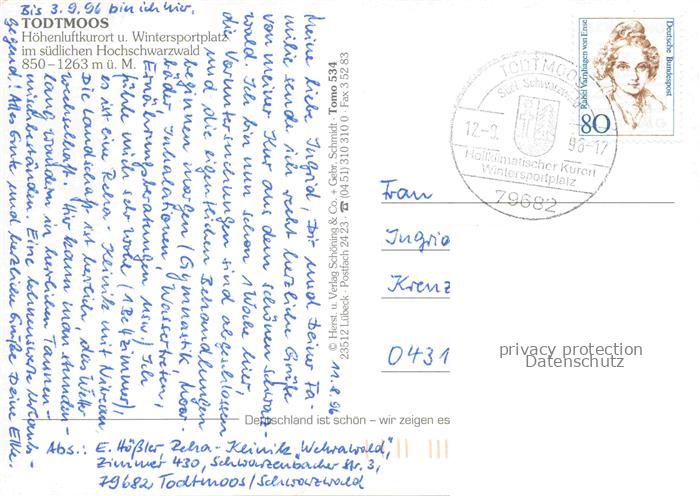 Bis 3.9.96 bin ich hier.
TODTMOOS
Höhenluftkurort u. Wintersportplatz
im südlichen Hochschwarzwald
850–1263 m ü. M.
11.8.96
Meine liebe Ingrid, Dir und Deiner Fa-
milie sende ich recht herzliche Grüße
von meiner Kur aus dem schönen Schwarz-
wald. Ich bin nun schon 1 Woche hier,
die Voruntersuchungen sind abgeschlossen
und die eigentlichen Behandlungen
beginnen morgen (Gymnastik, Moor-
bäder, Inhalationen, Wassertreten,
Ernährungsberatungen usw.) Ich
fühle mich sehr wohl (1 Bettzimmer),
es ist eine Reha-Klinik mit Niveau
Die Landschaft ist herrlich, das Wetter
wechselhaft. Hier kann man stunden-
lang wandern in herrlichen Tannen-
mischbeständen. Eine lohnenswerte Urlaubs-
gegend! Alles Gute und herzliche Grüße Deine Elke.
© Herst. u. Verlag Schöning & Co. + Gebr. Schmidt · Tomo 534
23512 Lübeck · Postfach 24 23 · ☎ (04 51) 310 310 0 · Fax 3 52 83
Deutsche Bundespost
Rahel Varnhagen von Ense
80
TODTMOOS
Südl. Schwarzwald
12.-8. 96-17
Heilklimatischer Kurort
Wintersportplatz
79682
Frau
Ingrid
Krenz
0431
privacy protection
Datenschutz
Deutschland ist schön – wir zeigen es
Abs.: E. Hößler, Reha-Klinik "Wehrawald",
Zimmer 430, Schwarzenbacher Str. 3,
79682 Todtmoos/Schwarzwald